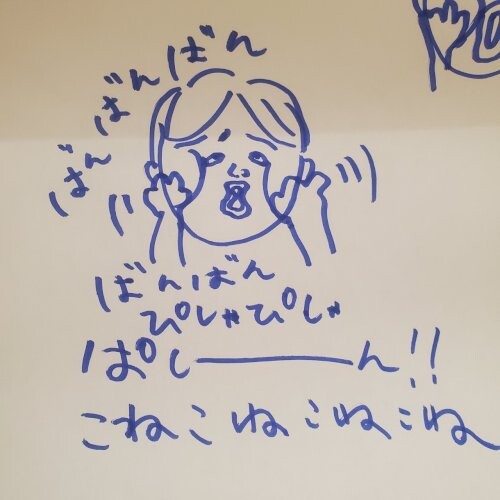 ばんばんばんばん
ばんばん
ぴしゃぴしゃ
ぱしーん!!
こねこねこねこね